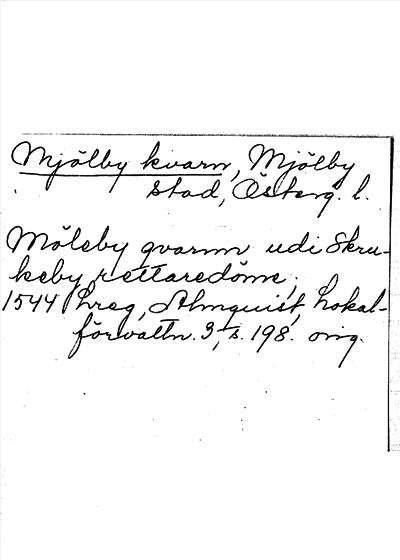 Mjölby kvarn, Mjölby
stad, Österg. l.
Möleby qvarnn udi Skru-
keby rettaredöme,
1544 hreg, Almquist, Lokal-
förvaltn. 3, s. 198. orig.